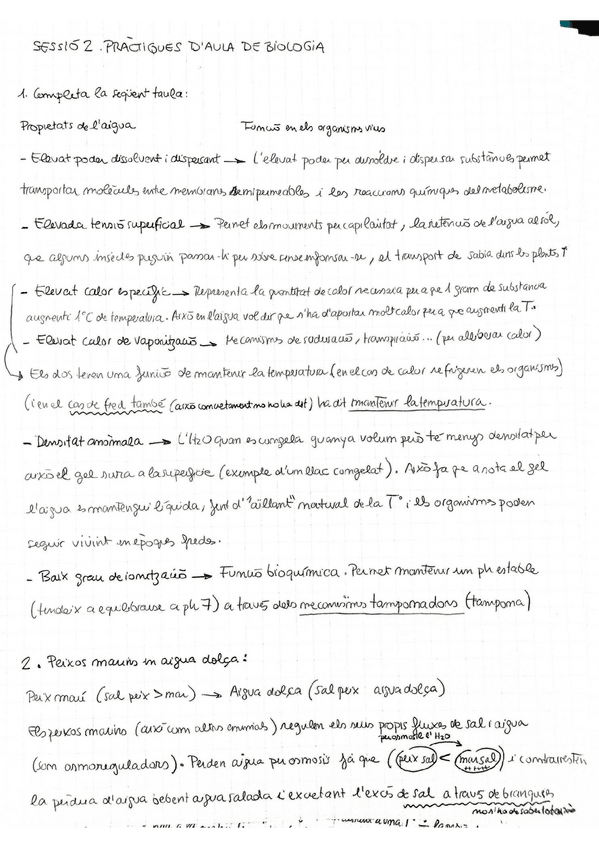 SESSIÓ 2. PRÀCTIQUES D'AULA DE BIOLOGIA
1. Completa la següent taula:
Propietats de l'aigua Funció en els organismes vius
- Elevat poder dissolvent i dispersant → L'elevat poder per dissoldre i dispersar substàncies permet
transportar molècules entre membranes semipermeables i les reaccions químiques del metabolisme.
- Elevada tensió superficial → Permet els moviments per capilaritat, la retenció de l'aigua al sòl,
que alguns insectes puguin passar-hi per sobre sense enfonsar-se, el transport de sabia dins les plantes ↑
- Elevat calor específic → Representa la quantitat de calor necessaria per a que 1 gram de substancia
augmenti 1°C de temperatura. Això en l'aigua vol dir que s'ha d'aportar molt calor per a que augmenti la Tª
- Elevat calor de vaporització → Mecanismes de sudoració, transpiració... (per alliberar calor)
→ Els dos tenen una funció de mantenir la temperatura (en el cas de calor refrigeren els organismes)
(i en el cas de fred també (això concretament no ho ha dit) ha dit mantenir la temperatura.
- Densitat anòmala → L'H2O quan es congela guanya volum però té menys densitat per
això el gel sura a la superficie (exemple d'un llac congelat). Això fa que a sota el gel
l'aigua es mantengui líquida, fent d'"aïllant" natural de la Tª i els organismes poden
seguir vivint en èpoques fredes.
- Baix grau de ionització → Funció bioquímica. Permet mantenir un ph estable
(tendeix a equilibrarse a ph 7) a través dels mecanismes tamponadors (tampona)
2. Peixos marins en aigua dolça:
Peix marí (sal peix > mar) → Aigua dolça (sal peix aigua dolça)
Els peixos marins (així com altres animals) regulen els seus propis fluxes de sal i aigua
per osmosi l'H2O
(són osmoreguladors). Perden aigua per osmosis ja que (peix sal < mar sal) i contraresten
la pèrdua d'aigua bebent aigua salada i excretant l'excés de sal a través de branquies
no s'ha de saber